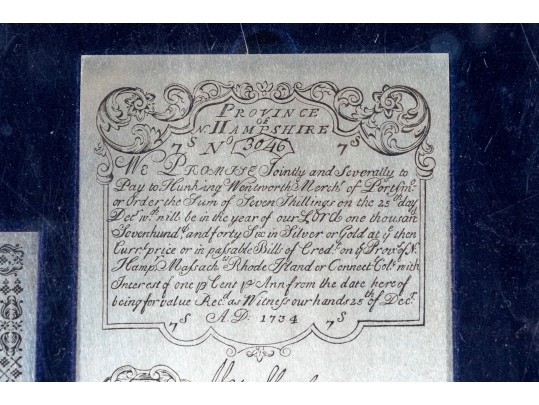 PROVINCE
OF
N. HAMPSHIRE
7S No 3046 7S
We PROMISE Jointly and Severally to
Pay to Hunking Wentworth Mercht. of Portsmo.
or Order the Sum of Seven Shillings on the 25th day
Decr. wch. will be in the year of our LORD one thousand
Sevenhundd. and forty Six in Silver or Gold at ye then
Currt. price or in passable Bills of Credt. on ye Provs. of N.
Hampr. Massachts. Rhode Island or Connect. Cols. with
Interest of one pr Cent pr Ann from the date hereof
being for value Recd. as Witness our hands 25th of Decr.
7S A.D: 1734 7S